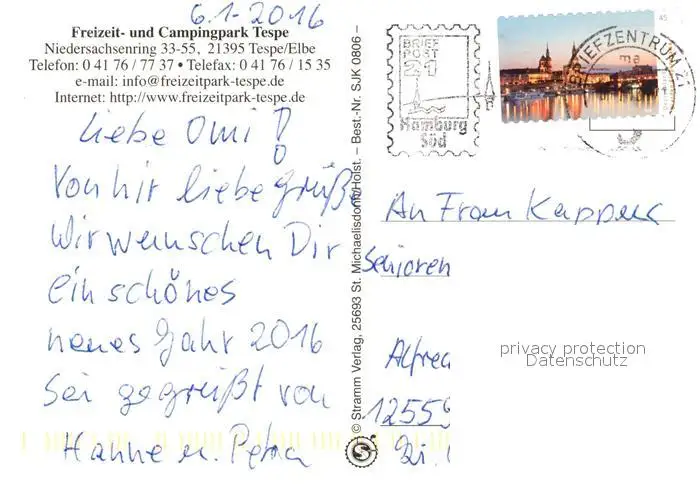 6.1-2016
Freizeit- und Campingpark Tespe
Niedersachsenring 33-55, 21395 Tespe/Elbe
Telefon: 0 41 76 / 77 37 • Telefax: 0 41 76 / 15 35
e-mail: info@freizeitpark-tespe.de
Internet: http://www.freizeitpark-tespe.de
Liebe Omi!
Von hir liebe Grüße
Wir wunschen Dir
ein schönes
neues Jahr 2016
Sei gegrüßt von
Hanne u. Petra
© Stramm Verlag, 25693 St. Michaelisdonn/Holst. – Best.-Nr. SJK 0806 –
BRIEF
POST
21
Hamburg
Süd
BRIEFZENTRUM 21
ma
45
An Frau
Senioren
Alfred
12559
privacy protection
Datenschutz
S